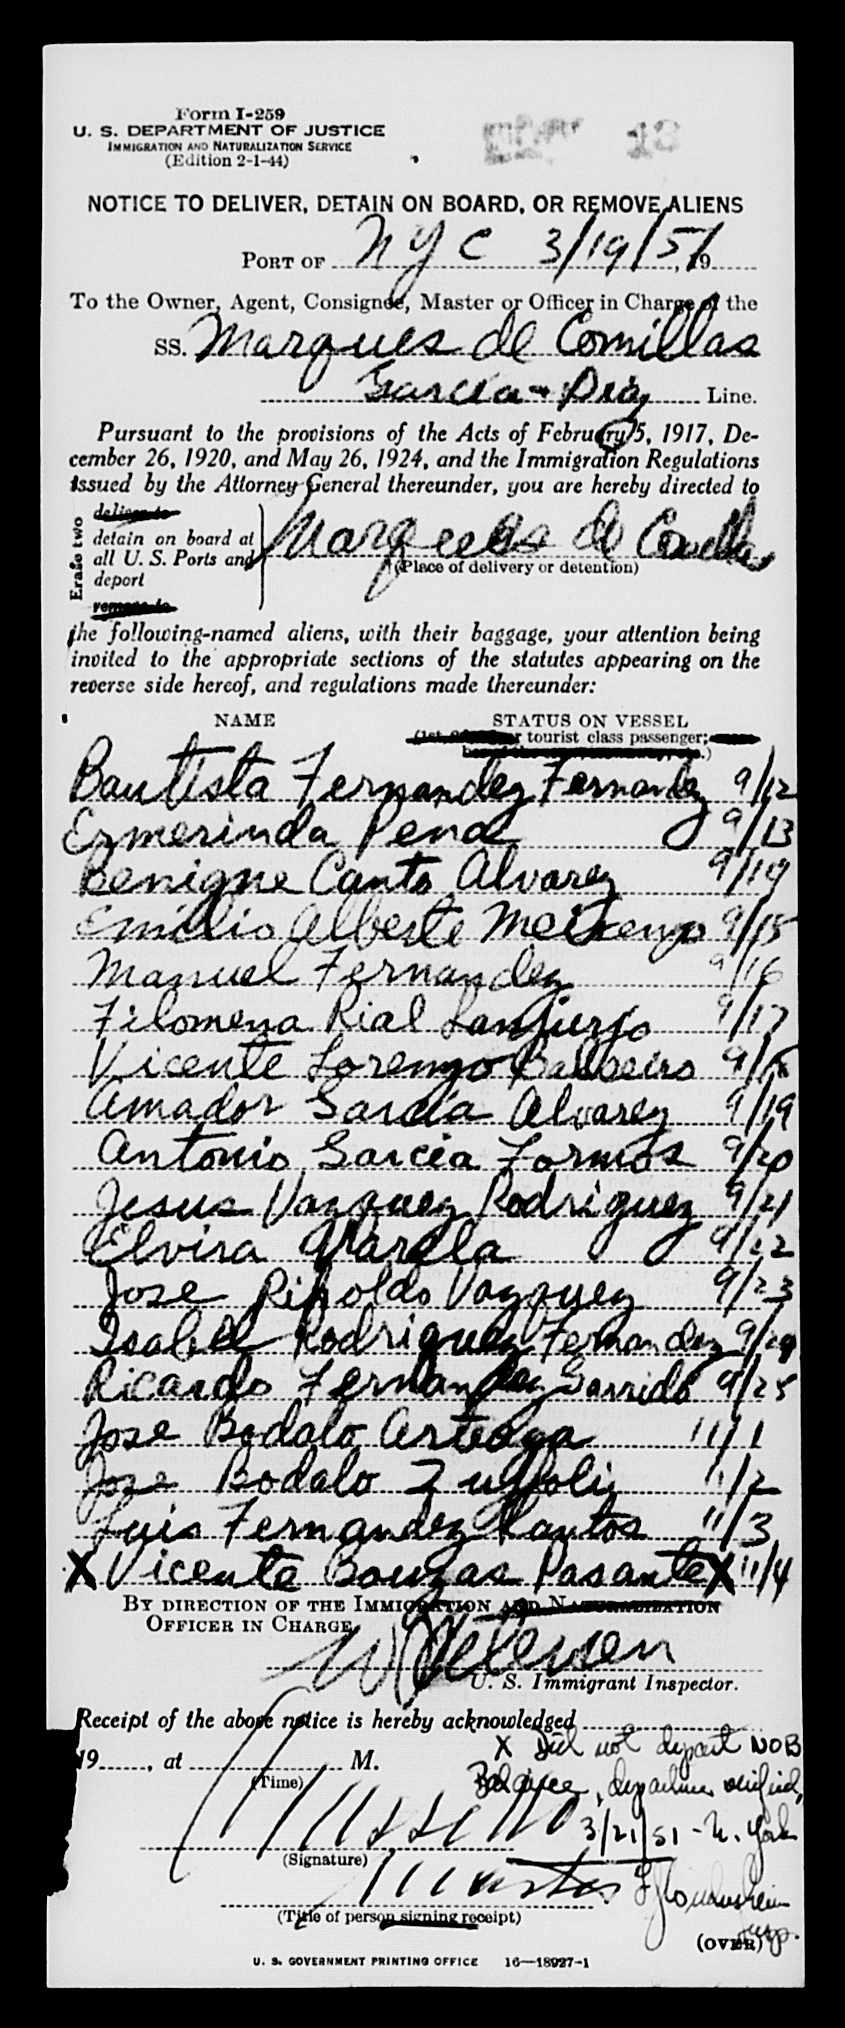 Form I-259
U. S. DEPARTMENT OF JUSTICE
IMMIGRATION AND NATURALIZATION SERVICE
(Edition 2-1-44)
NOTICE TO DELIVER, DETAIN ON BOARD, OR REMOVE ALIENS
PORT OF NYC 3/19/51, 19
To the Owner, Agent, Consignee, Master or Officer in Charge of the
SS. Marques de Comillas
Garcia & Diaz Line.
Pursuant to the provisions of the Acts of February 5, 1917, De-
cember 26, 1920, and May 26, 1924, and the Immigration Regulations
issued by the Attorney General thereunder, you are hereby directed to
Erase two
deliver to
detain on board at
all U. S. Ports and
deport
remove to
Marques de Comillas
(Place of delivery or detention)
the following-named aliens, with their baggage, your attention being
invited to the appropriate sections of the statutes appearing on the
reverse side hereof, and regulations made thereunder:
NAME STATUS ON VESSEL
tourist class passenger;
Bautista Fernandez Fernandez 9/12
Ermerinda Pena 9/13
Benigne Canto Alvarez 9/14
Emilio Alberte 9/15
Manuel Fernandez 9/16
Filomena Rial Sanjurjo 9/17
Vicente Lorenzo 9/18
Amador Garcia Alvarez 9/19
Antonio Garcia Formos 9/20
Jesus Vazquez Rodriguez 9/21
Elvira Varela 9/22
Jose Ripoldo Vazquez 9/23
Isabel Rodriguez Fernandez 9/24
Ricardo Fernandez Garrido 9/25
Jose Bodalo Arteaga 11/1
Jose Bodalo 11/2
Luis Fernandez Santos 11/3
X Vicente Bouzas Pasante X 11/4
BY DIRECTION OF THE IMMIGRATION AND NATURALIZATION
OFFICER IN CHARGE
U. S. Immigrant Inspector.
Receipt of the above notice is hereby acknowledged
19, at M.
(Time)
X Did not depart NOB
Balance, departure verified,
3/21/51 - N. York
(Signature)
(Title of person signing receipt)
Insp.
(OVER)
U. S. GOVERNMENT PRINTING OFFICE 16—18927-1